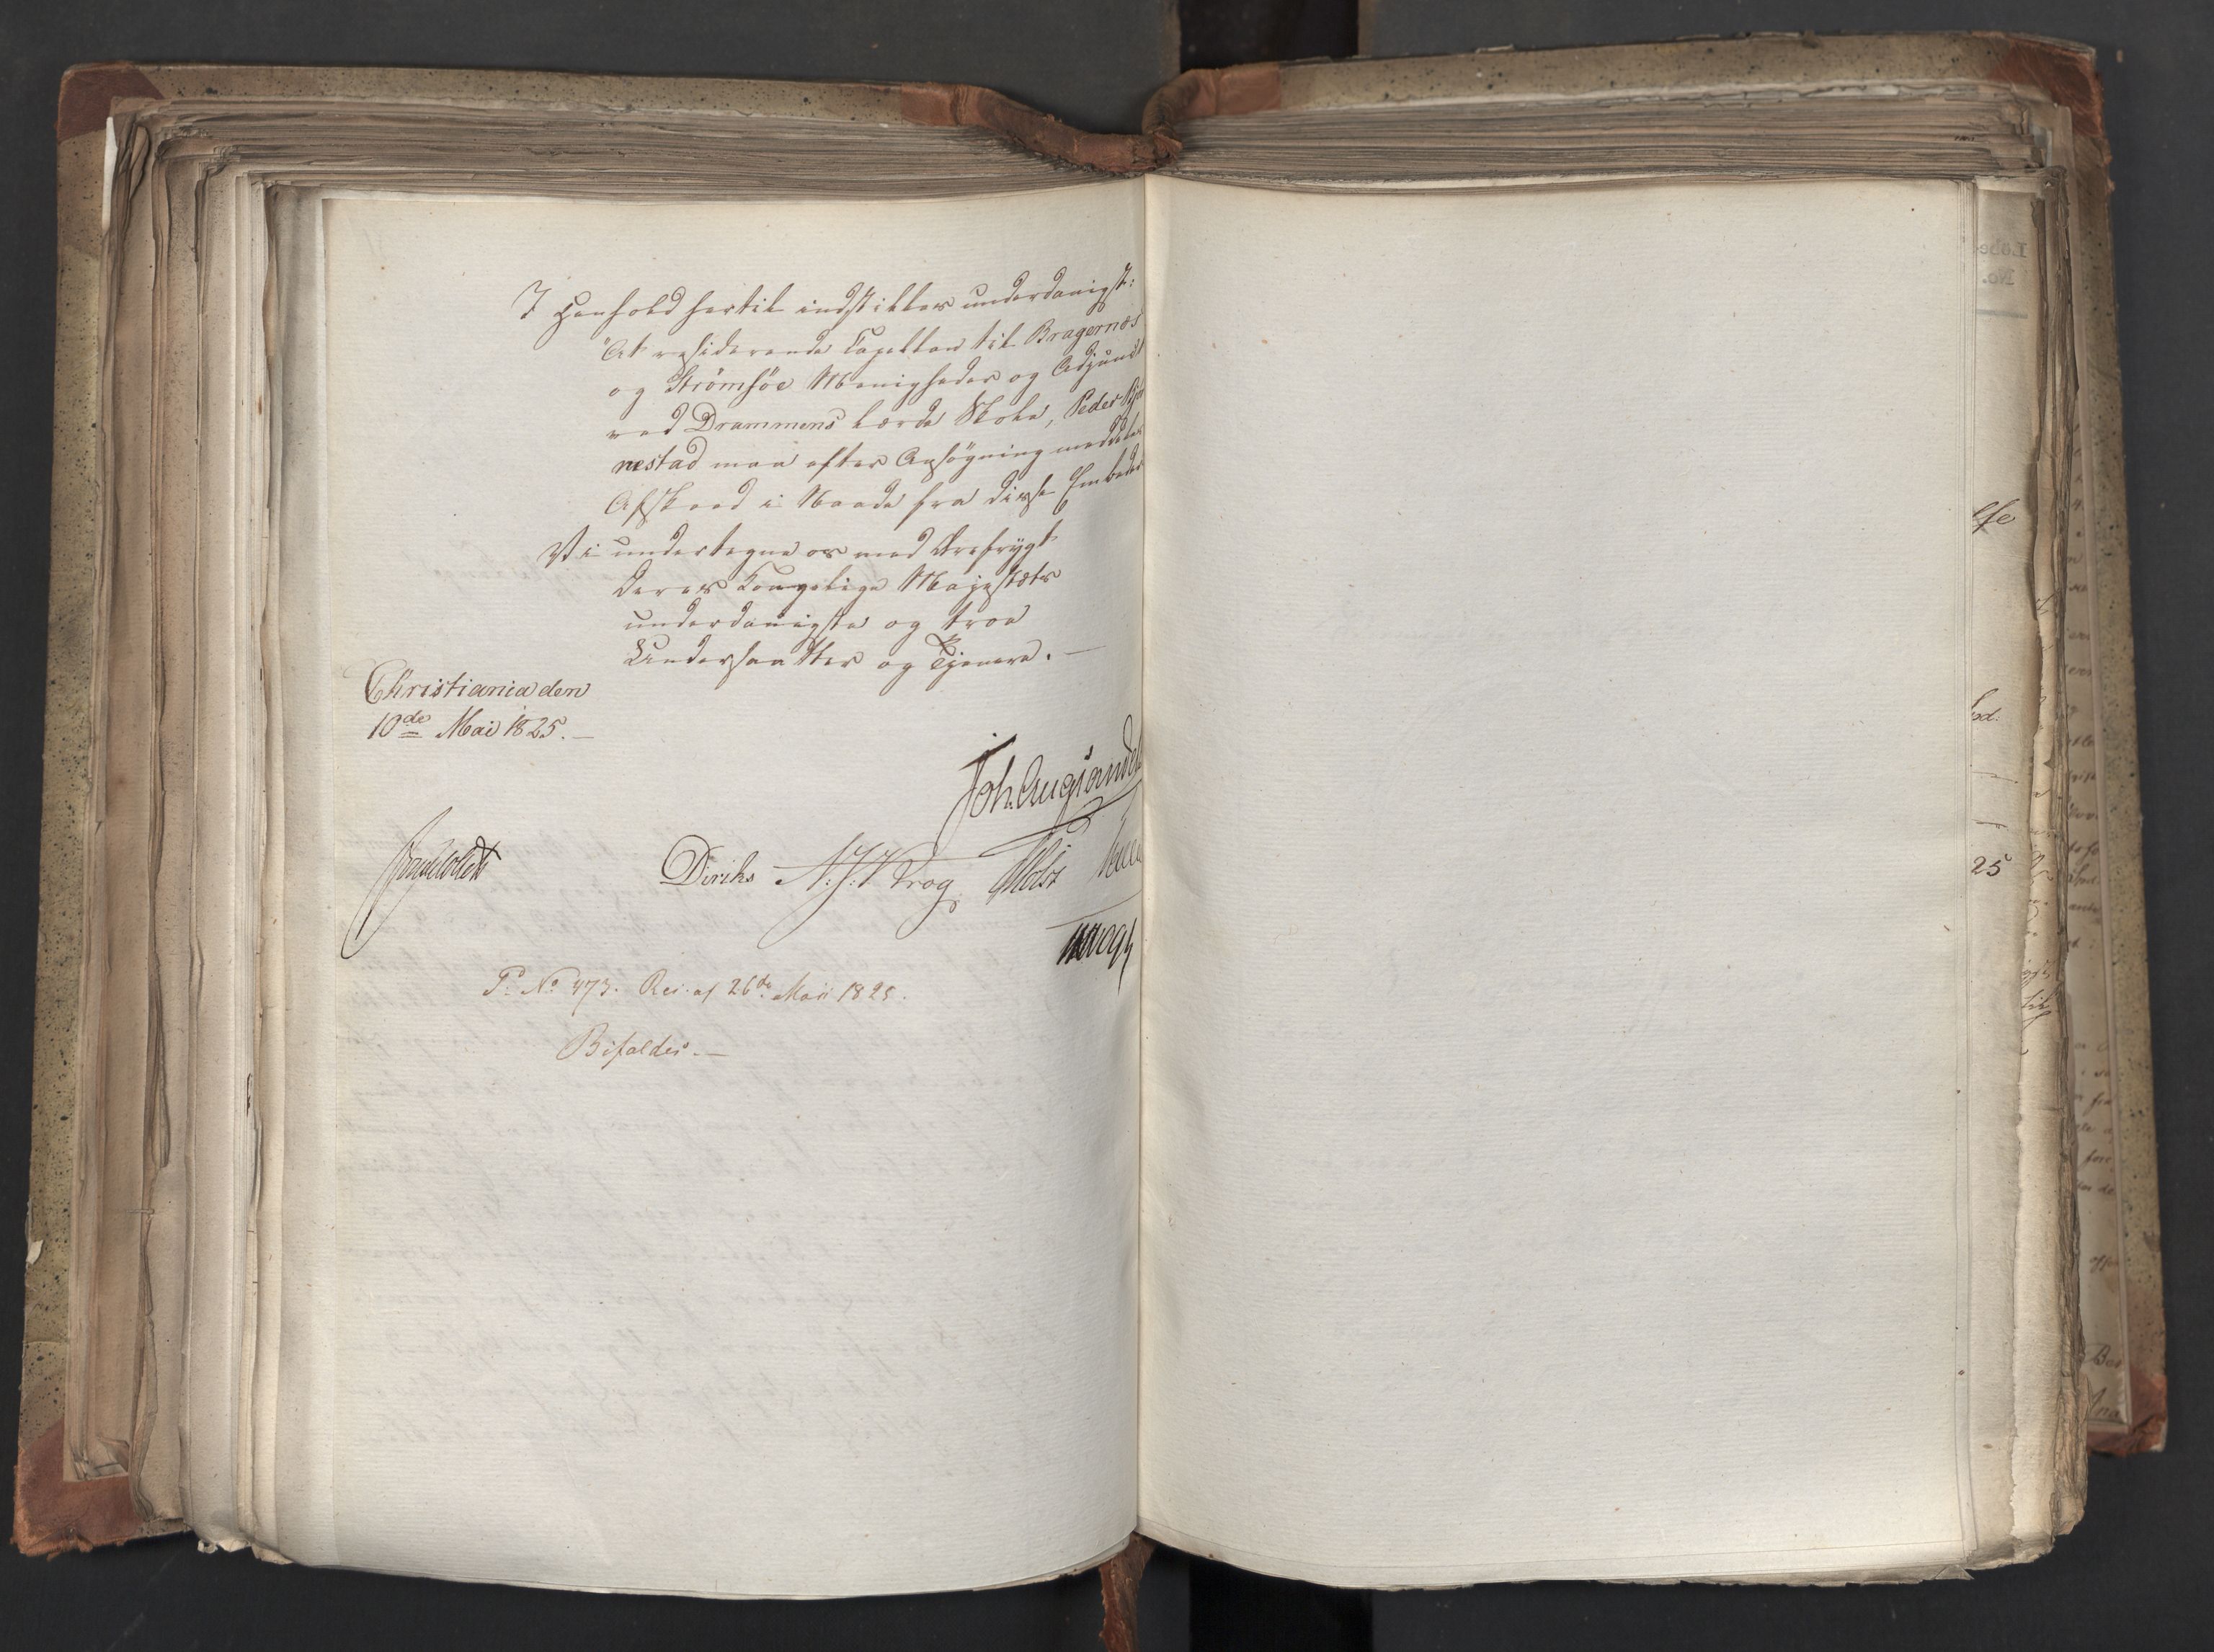 I Henhold hertil indstilles underdanigst:
"At residerende Capellan til Bragernæs
og Strömsöe Menigheder og Adjunct
ved Drammens lærde Skole, Peder
nestad maa efter Ansögning meddeles
Afskeed i Naade fra disse Embeder
Vi undertegne os med Ærefrygt
Deres Kongelige Majestæts
underdanigste og troe
Undersaatter og Tjenere. —
Christiania den
10de Mai 1825. —
Joh. Aug. Sandels
Diriks N: J: V Krog Holst
Pr No 473. Res: af 26de Maii 1825.
Bifaldes. —
25